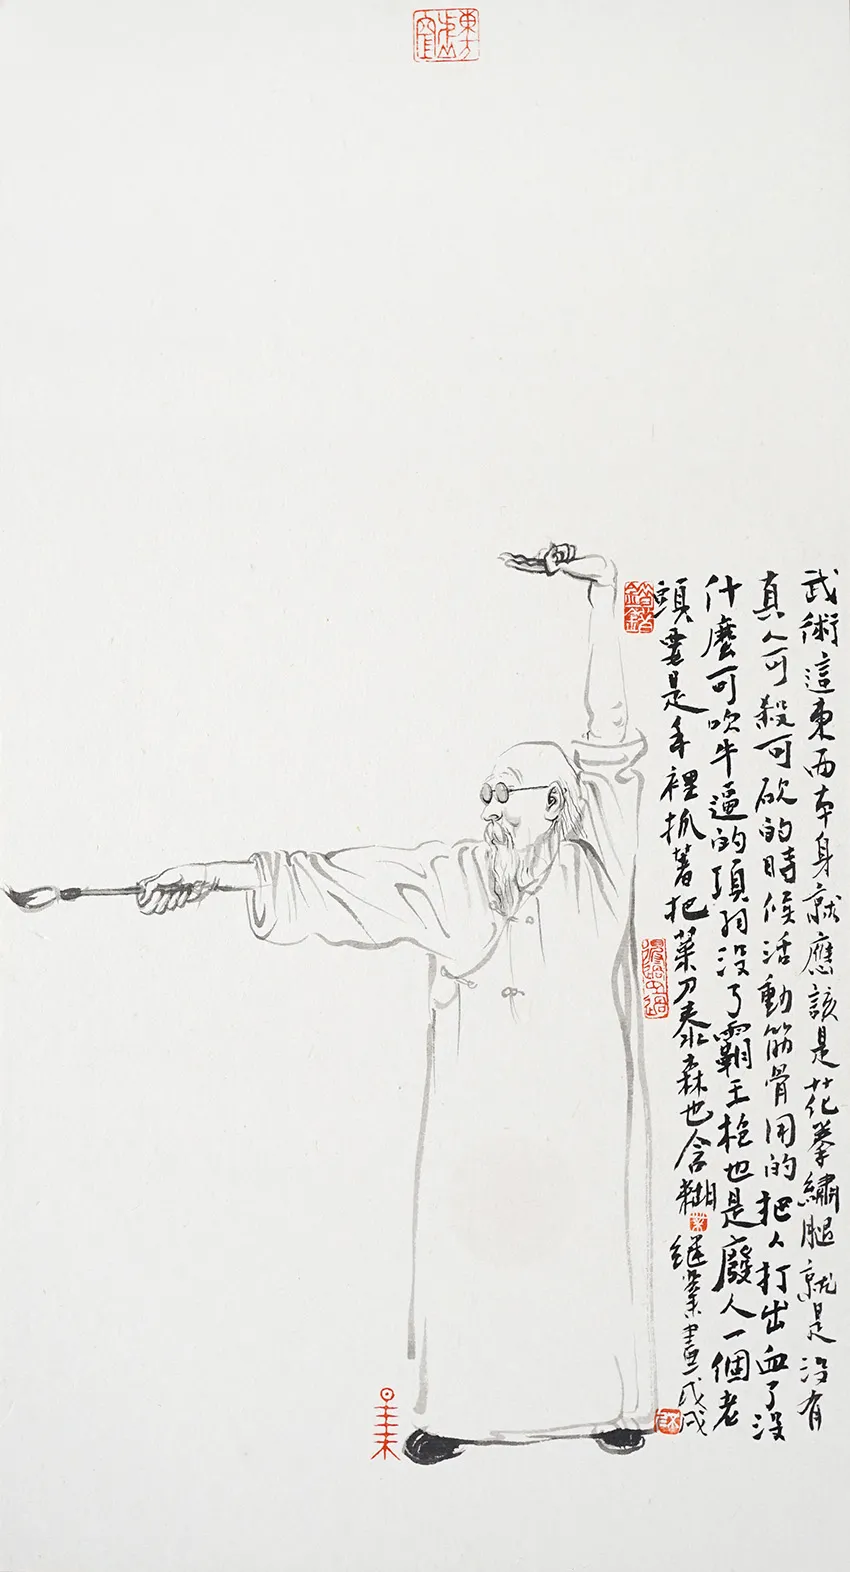 武術這東西本身就應該是花拳繡腿就是没有
真人可殺可砍的時候活動筋骨用的把人打出血了没
什麼可吹牛逼的項羽没了霸王槍也是廢人一個老
頭要是手裡抓著把菜刀泰森也含糊
继業畫戊戌